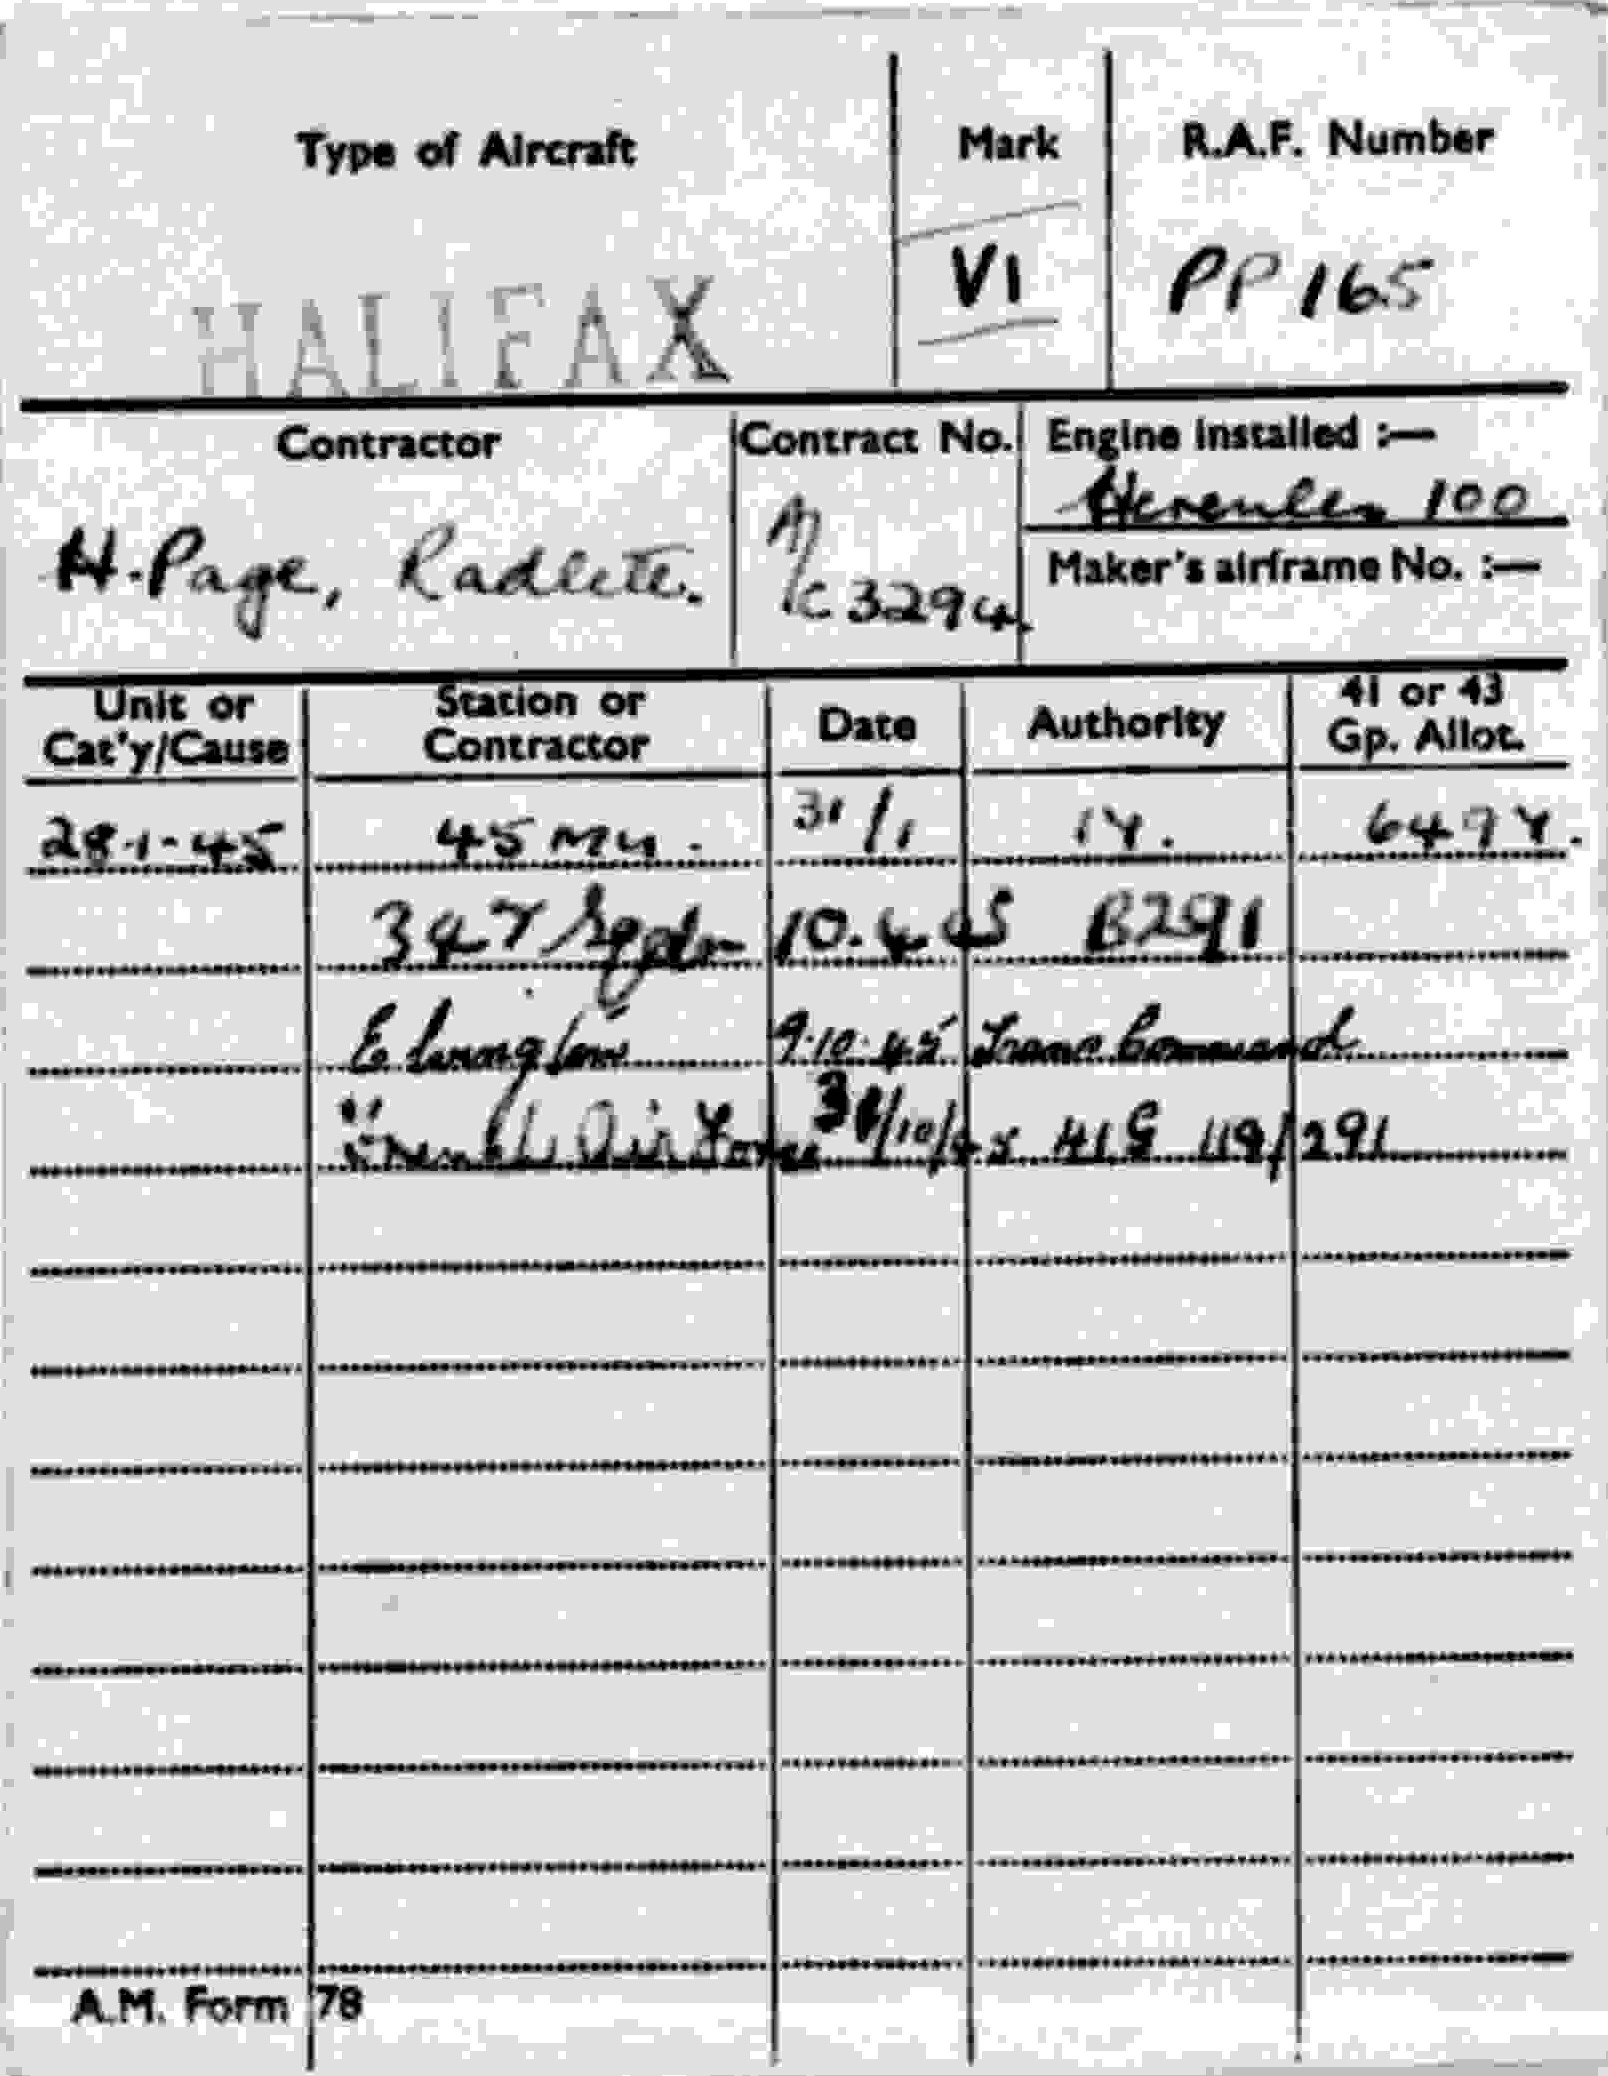 Type of Aircraft Mark R.A.F. Number
HALIFAX VI PP165
Contractor Contract No. Engine installed :—
Hercules 100
H. Page, Radlett. A/C 3294 Maker's airframe No. :—
Unit or Cat'y/Cause Station or Contractor Date Authority 41 or 43 Gp. Allot.
28-1-45 45 Mu. 31/1 14. 649
347 Sqdn 10.4.45 B291
Elvington 9.10.45 Trans Command
French Air Force /10/45 41G 119/291
A.M. Form 78